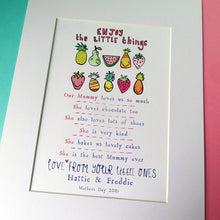 ENJOY
the LiTTLE THiNGs
Our Mommy loves us so much
She loves chocolate too
She also loves lots of shoes
She is very kind
She bakes us lovely cakes
She is the best Mommy ever
LOVE FROM YOUR LiTTLE ONES
Hattie & Freddie
Mothers Day 2016